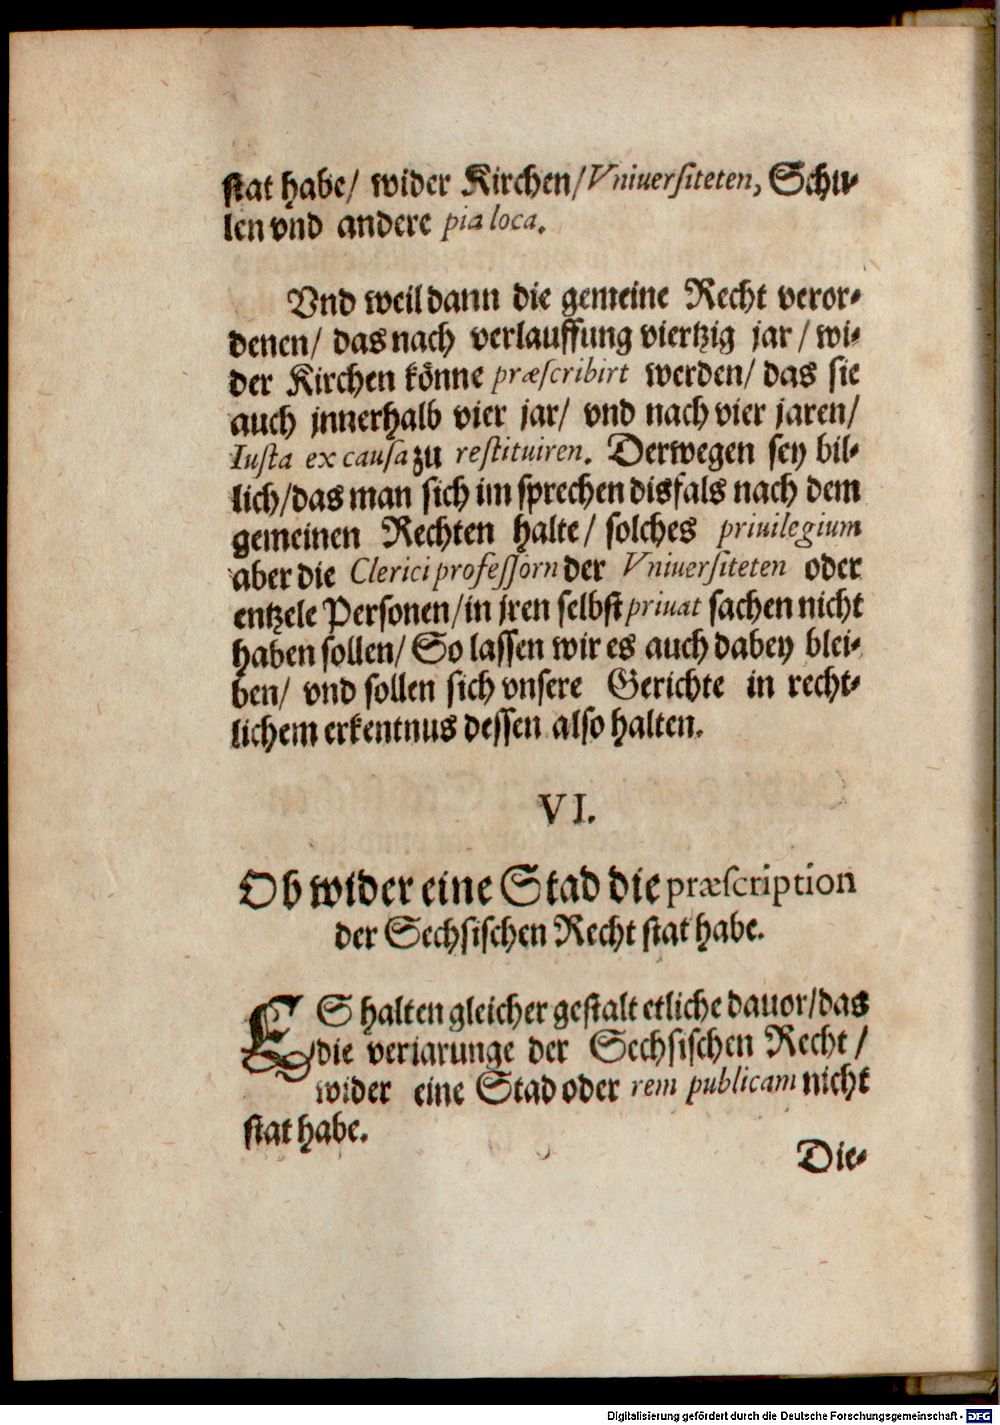 ſtat habe/ wider Kirchen/ Vniuerſiteten, Schu-
len vnd andere pia loca.
Vnd weil dann die gemeine Recht veror-
denen/ das nach verlauffung viertzig jar / wi-
der Kirchen könne præſcribirt werden/ das ſie
auch jnnerhalb vier jar/ vnd nach vier jaren/
Iuſta ex cauſa zu reſtituiren. Derwegen ſey bil-
lich/ das man ſich im ſprechen disfals nach dem
gemeinen Rechten halte/ ſolches priuilegium
aber die Clerici profeſſorn der Vniuerſiteten oder
entzele Perſonen/ in jren ſelbſt priuat ſachen nicht
haben ſollen/ So laſſen wir es auch dabey blei-
ben/ vnd ſollen ſich vnſere Gerichte in recht-
lichem erkentnus deſſen alſo halten.
VI.
Ob wider eine Stad die præſcription
der Sechſiſchen Recht ſtat habe.
ES halten gleicher geſtalt etliche dauor/ das
die veriarunge der Sechſiſchen Recht /
wider eine Stad oder rem publicam nicht
ſtat habe.
Die-
Digitalisierung gefördert durch die Deutsche Forschungsgemeinschaft - DFG